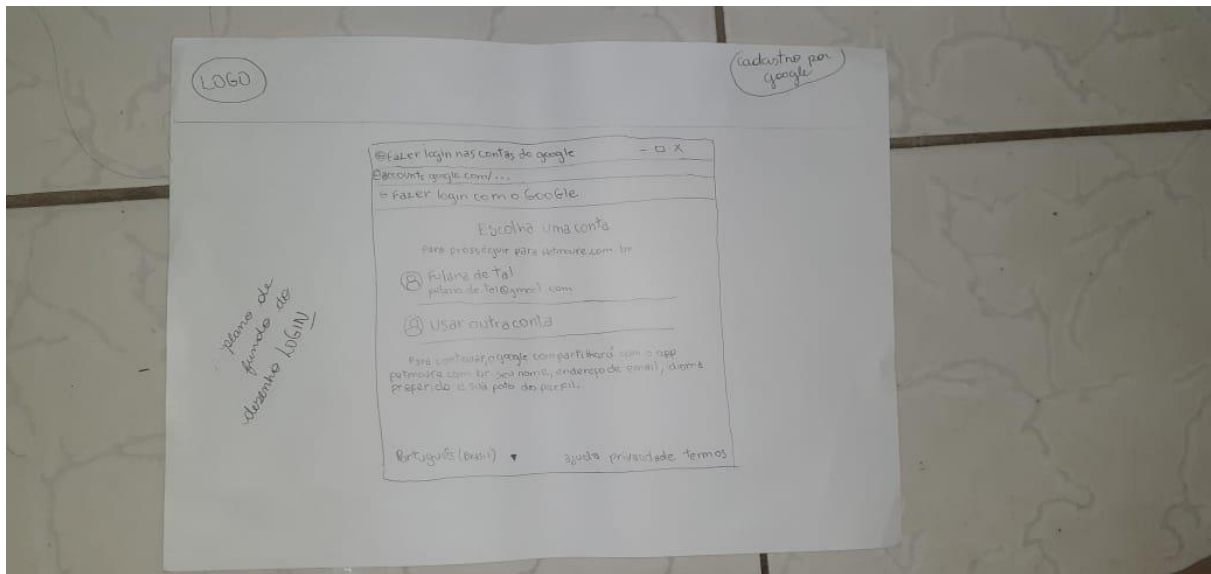 LOGO
Cadastro por
google
Fazer login nas contas do google
accounts google com/...
Fazer login com o GooGle
Escolha uma conta
Para prosseguir para .com.br
Fulano de Tal
fulano.de.tal@gmail.com
Usar outra conta
Para continuar, o google compartilhará com o app
petmoure.com.br seu nome, endereço de email, idioma
preferido e sua foto do perfil.
Português (Brasil) ▾ ajuda privacidade termos
plano de
fundo do
desenho LOGIN